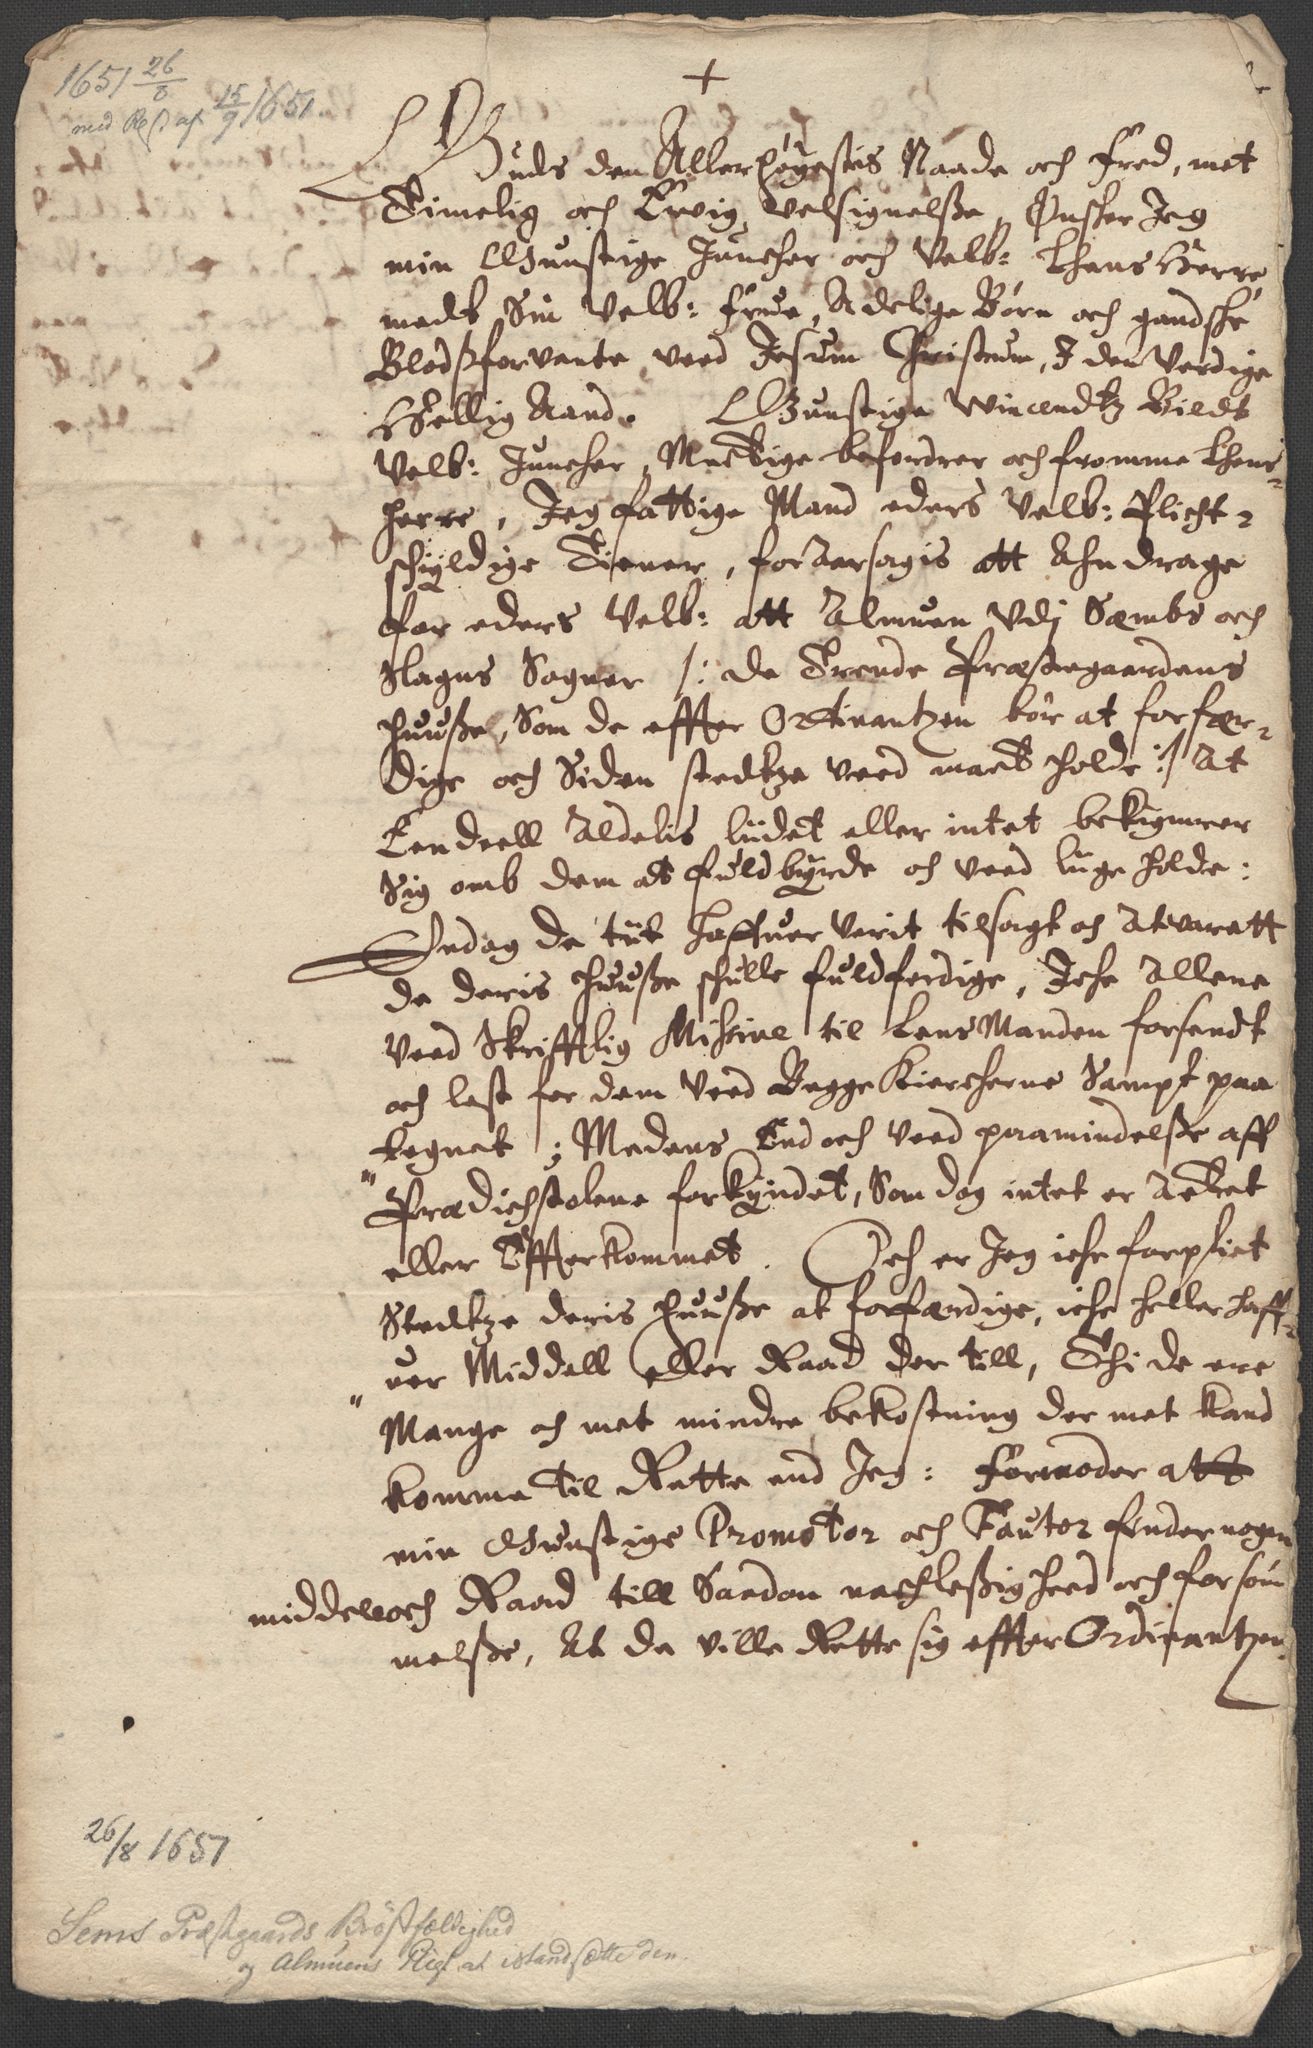 1651 26/8
med Res. af 15/9 1651.
+
Guds den Allerhögestis Naade och Fred, met
Timelig och Ewig Velsignelsse, Ønsker Jeg
min Gunstige Juncher och Velb: Lhens Herre
medt Sin Velb: Frue, Adelige Börn och gandske
Blodssforvante, ved Jesum Christum, J den Verdige
Hellig Aand. Gunstige Wincendtz Bildt
Velb: Juncher, Mectige befordrer och fromme Lhens-
herre, Jeg fattige Mand eders Velb: Plicht-
schyldige Tiener, foraarsagis att Ahndrage
for eders Velb: att Almuen Vdj Sembs och
Slagns Sogner /: de Trende Præstegaardens
Huusse, Som de effter Ordinantzen bör at forfær-
dige och Siden stedtze ved mact holde :/ At
Eendeell Aldelis lidet eller intet bekymrer
Sig omb dem at fuldbyrde och ved lige holde:
Endog de tit haffuer Verit tilsagt och Atvaratt
de deris Huusse schulle fuldferdige, Iche Allene
Ved Skrifftlig Missive til Lens Manden forsendt
och lest for dem Ved Begge Kiercherne Sampt paa
tegnet; Medens End och Ved paamindelsse aff
Prædichstolene forkyndet, Som dog intet er Actet
eller Effterkommet. Och er Jeg iche forplict
Stedtze deris Huusse at forfærdige, iche heller haff-
uer Middell eller Raad der till, Thi de ere
Mange och met mindre bekostning der met kand
komme Til Rette end Jeg: Formoder att
min Gunstige Promotor och Fautor finder nogen
middell och Raad till Saadan nachlessigheed och forsöm
melsse, At de ville Rette sig effter Ordinantzen.
26/8 1651
Sems Præstgaards Bröstfældighed
og Almuens Pligt at istandsætte den.